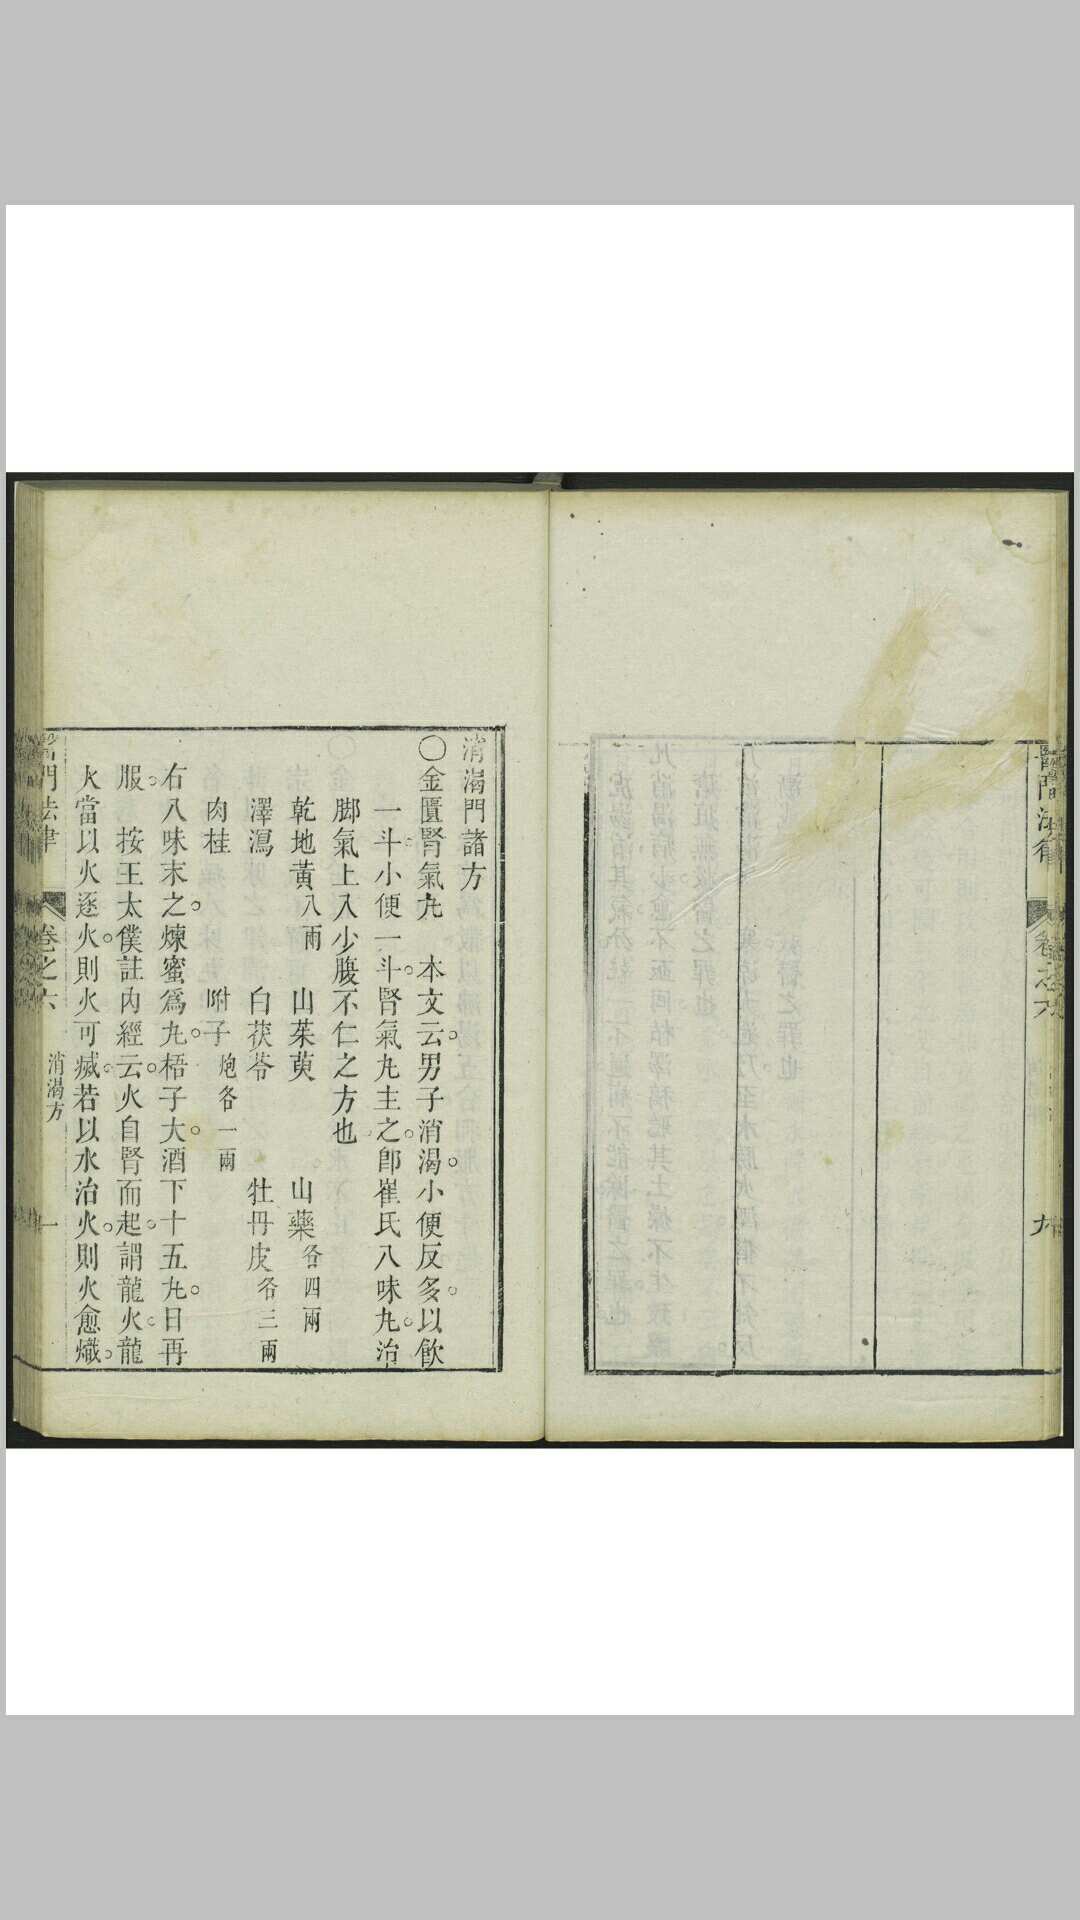 醫門法律 卷之六
消渴門諸方
〇金匱腎氣丸　本文云男子消渴小便反多以飲
一斗小便一斗腎氣丸主之卽崔氏八味丸治
脚氣上入少腹不仁之方也
乾地黃八兩　山茱萸　山藥各四兩
澤瀉　白茯苓　牡丹皮各三兩
肉桂　附子炮各一兩
右八味末之煉蜜爲丸梧子大酒下十五丸日再
服　按王太僕註內經云火自腎而起謂龍火龍
火當以火逐火則火可滅若以水治火則火愈熾
醫門法律 卷之六 消渴方 一